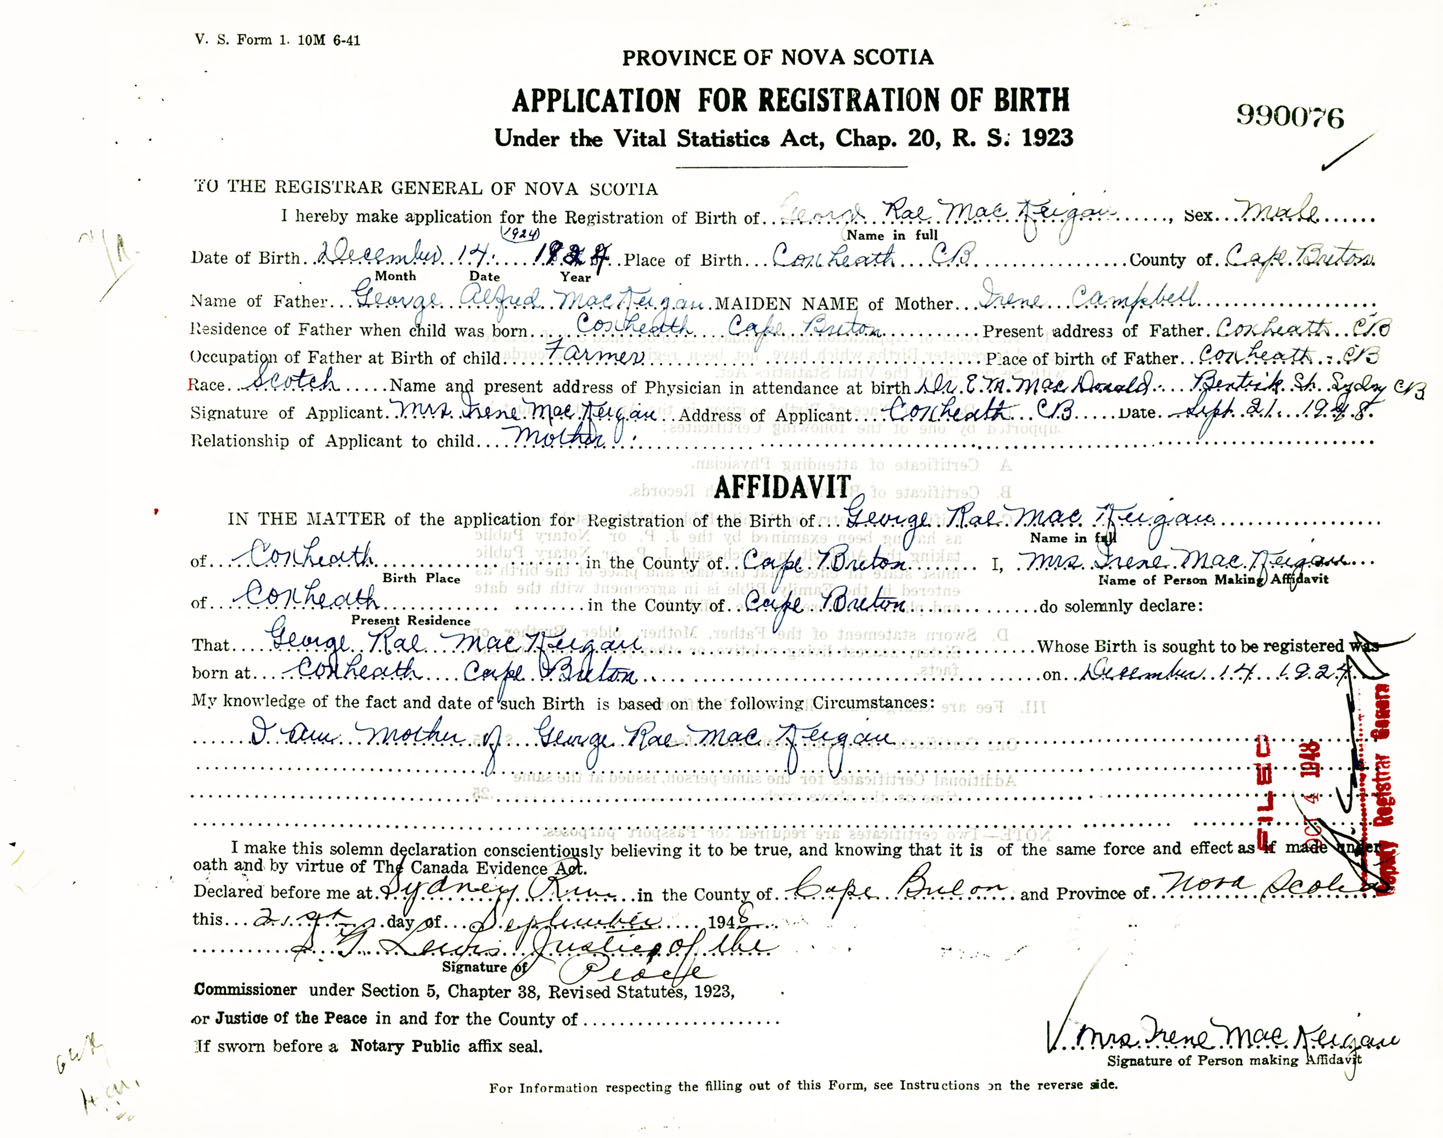 V. S. Form 1. 10M 6-41
PROVINCE OF NOVA SCOTIA
APPLICATION FOR REGISTRATION OF BIRTH
990076
Under the Vital Statistics Act, Chap. 20, R. S. 1923
TO THE REGISTRAR GENERAL OF NOVA SCOTIA
I hereby make application for the Registration of Birth of George Rae MacKeigan, Sex Male
Name in full
(1924)
Date of Birth December 14. 1924 Place of Birth Coxheath CB County of Cape Breton
Month Date Year
Name of Father George Alfred MacKeigan MAIDEN NAME of Mother Irene Campbell
Residence of Father when child was born Coxheath Cape Breton Present address of Father Coxheath CB
Occupation of Father at Birth of child Farmer Place of birth of Father Coxheath - CB
Race Scotch Name and present address of Physician in attendance at birth Dr. E. M. MacDonald. Bentick St. Sydny CB
Signature of Applicant Mrs. Irene MacKeigan Address of Applicant Coxheath CB Date Sept. 21. 1948.
Relationship of Applicant to child Mother
AFFIDAVIT
IN THE MATTER of the application for Registration of the Birth of George Rae MacKeigan
Name in full
of Coxheath in the County of Cape Breton I, Mrs. Irene MacKeigan
Birth Place Name of Person Making Affidavit
of Coxheath in the County of Cape Breton do solemnly declare:
Present Residence
That George Rae MacKeigan Whose Birth is sought to be registered was
born at Coxheath Cape Breton on December 14 1924
My knowledge of the fact and date of such Birth is based on the following Circumstances:
I am Mother of George Rae MacKeigan
FILED
OCT 4 1948
Deputy Registrar General
I make this solemn declaration conscientiously believing it to be true, and knowing that it is of the same force and effect as if made under
oath and by virtue of The Canada Evidence Act.
Declared before me at Sydney River in the County of Cape Breton and Province of Nova Scotia
this 21st day of September 1948
S. G. Lewis Justice of the
Signature of Peace
Commissioner under Section 5, Chapter 38, Revised Statutes, 1923,
or Justice of the Peace in and for the County of
If sworn before a Notary Public affix seal.
Mrs. Irene MacKeigan
Signature of Person making Affidavit
For Information respecting the filling out of this Form, see Instructions on the reverse side.